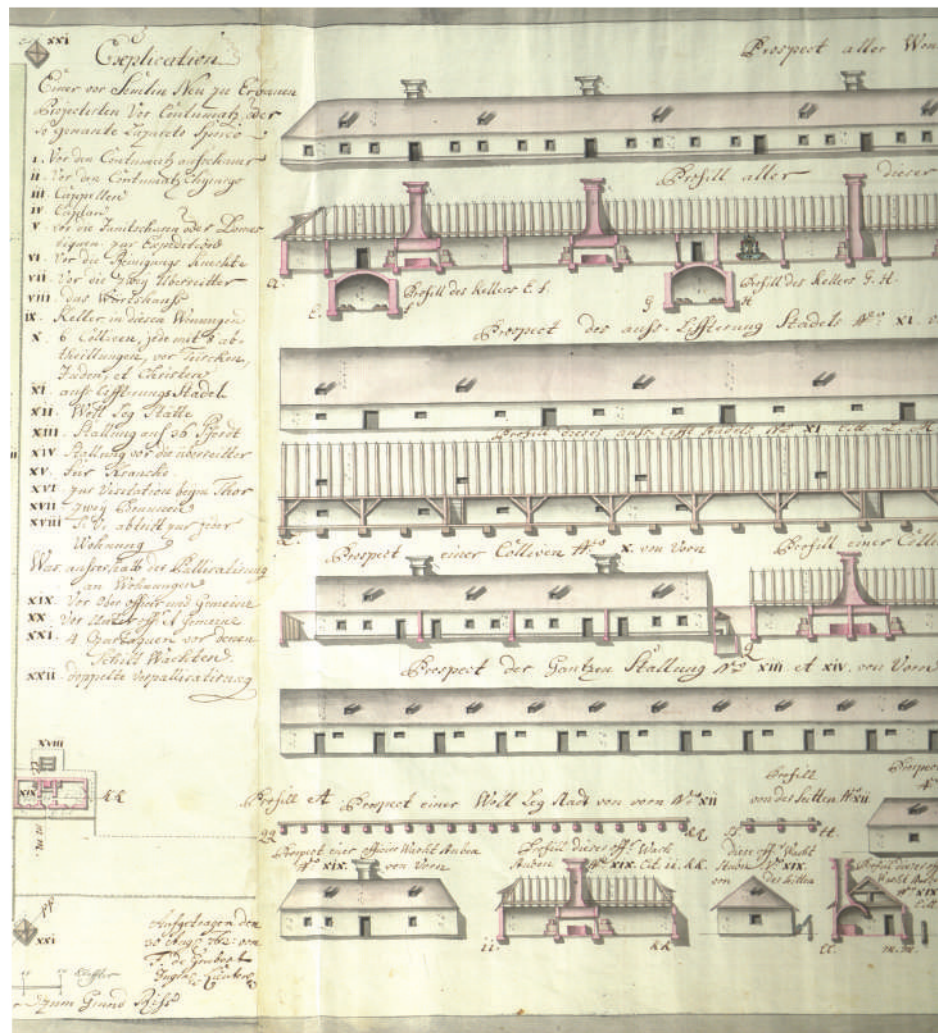 XXI
Explication
Einer vor Semlin Neu zu Erbauen
Projectirten Vor Contumatz, oder
so genante Lazareto Sporco
I. Vor den Contumatz aufschauer
II. Vor den Contumatz Chyrurgo
III. Cappellen
IV. Caplan
V. vor die Janitscharen oder
zur Expedition
VI. Vor die Reinigungs Knechte
VII. Vor die zwey Überreitter
VIII. das Würtshauss
IX. Keller in diesen Wonungen
X. 6 Colliven, jede mit 8 ab-
theillungen, vor Türcken,
Juden, et Christen
XI. auss Lifftrungs Stadel
XII. Woll Leg Stätte
XIII. Stallung auf 36 Pferdt
XIV. Stallung vor die überreitter
XV. Für Krancke
XVI. zur Visitation beym Thor
XVII. zwey Brunnen
XVIII. S. V. abtritt zur jeder
Wohnung
Was ausserhalb der Pallisatirung
an Wohnungen
XIX. Vor Ober officir und Gemeine
XX. Vor Unter off. et Gemeine
XXI. 4 vor denen
Schilt Wachten
XXII. doppelte Verpallisatirung
XVIII
XIX
kk
XXI
pp
Aufgetragen den
30 Aug.
Klaffter
zum Grund Riss
Prospect aller Won
Profill aller dieser
a.
E. f
Profill des Kellers E. f.
g H
Profill des Kellers G. H.
Prospect des auss-Liffterung Stadels No. XI.
Profill dieses auss-Lifft Stadels No. XI. Litt. L. M
Prospect einer Colliven No. X. von Vorn
Profill einer Colli
Prospect der Gantzen Stallung No. XIII et XIV. von Vorn
Profill et Prospect einer Woll Leg Stadt von vorn No. XII
Profill
von der seitten No. XII
Prospect
tt.
Prospect einer officir Wacht Stuben
No. XIX. von Vorn
Profill dieser off. Wacht
Stuben No. XIX. Lit. ii. kk.
dieser off. Wacht
Stuben No. XIX.
von der seitten
Profill dieser off
Wacht
No. XIX
Litt
ii. kk
ll. m.m.